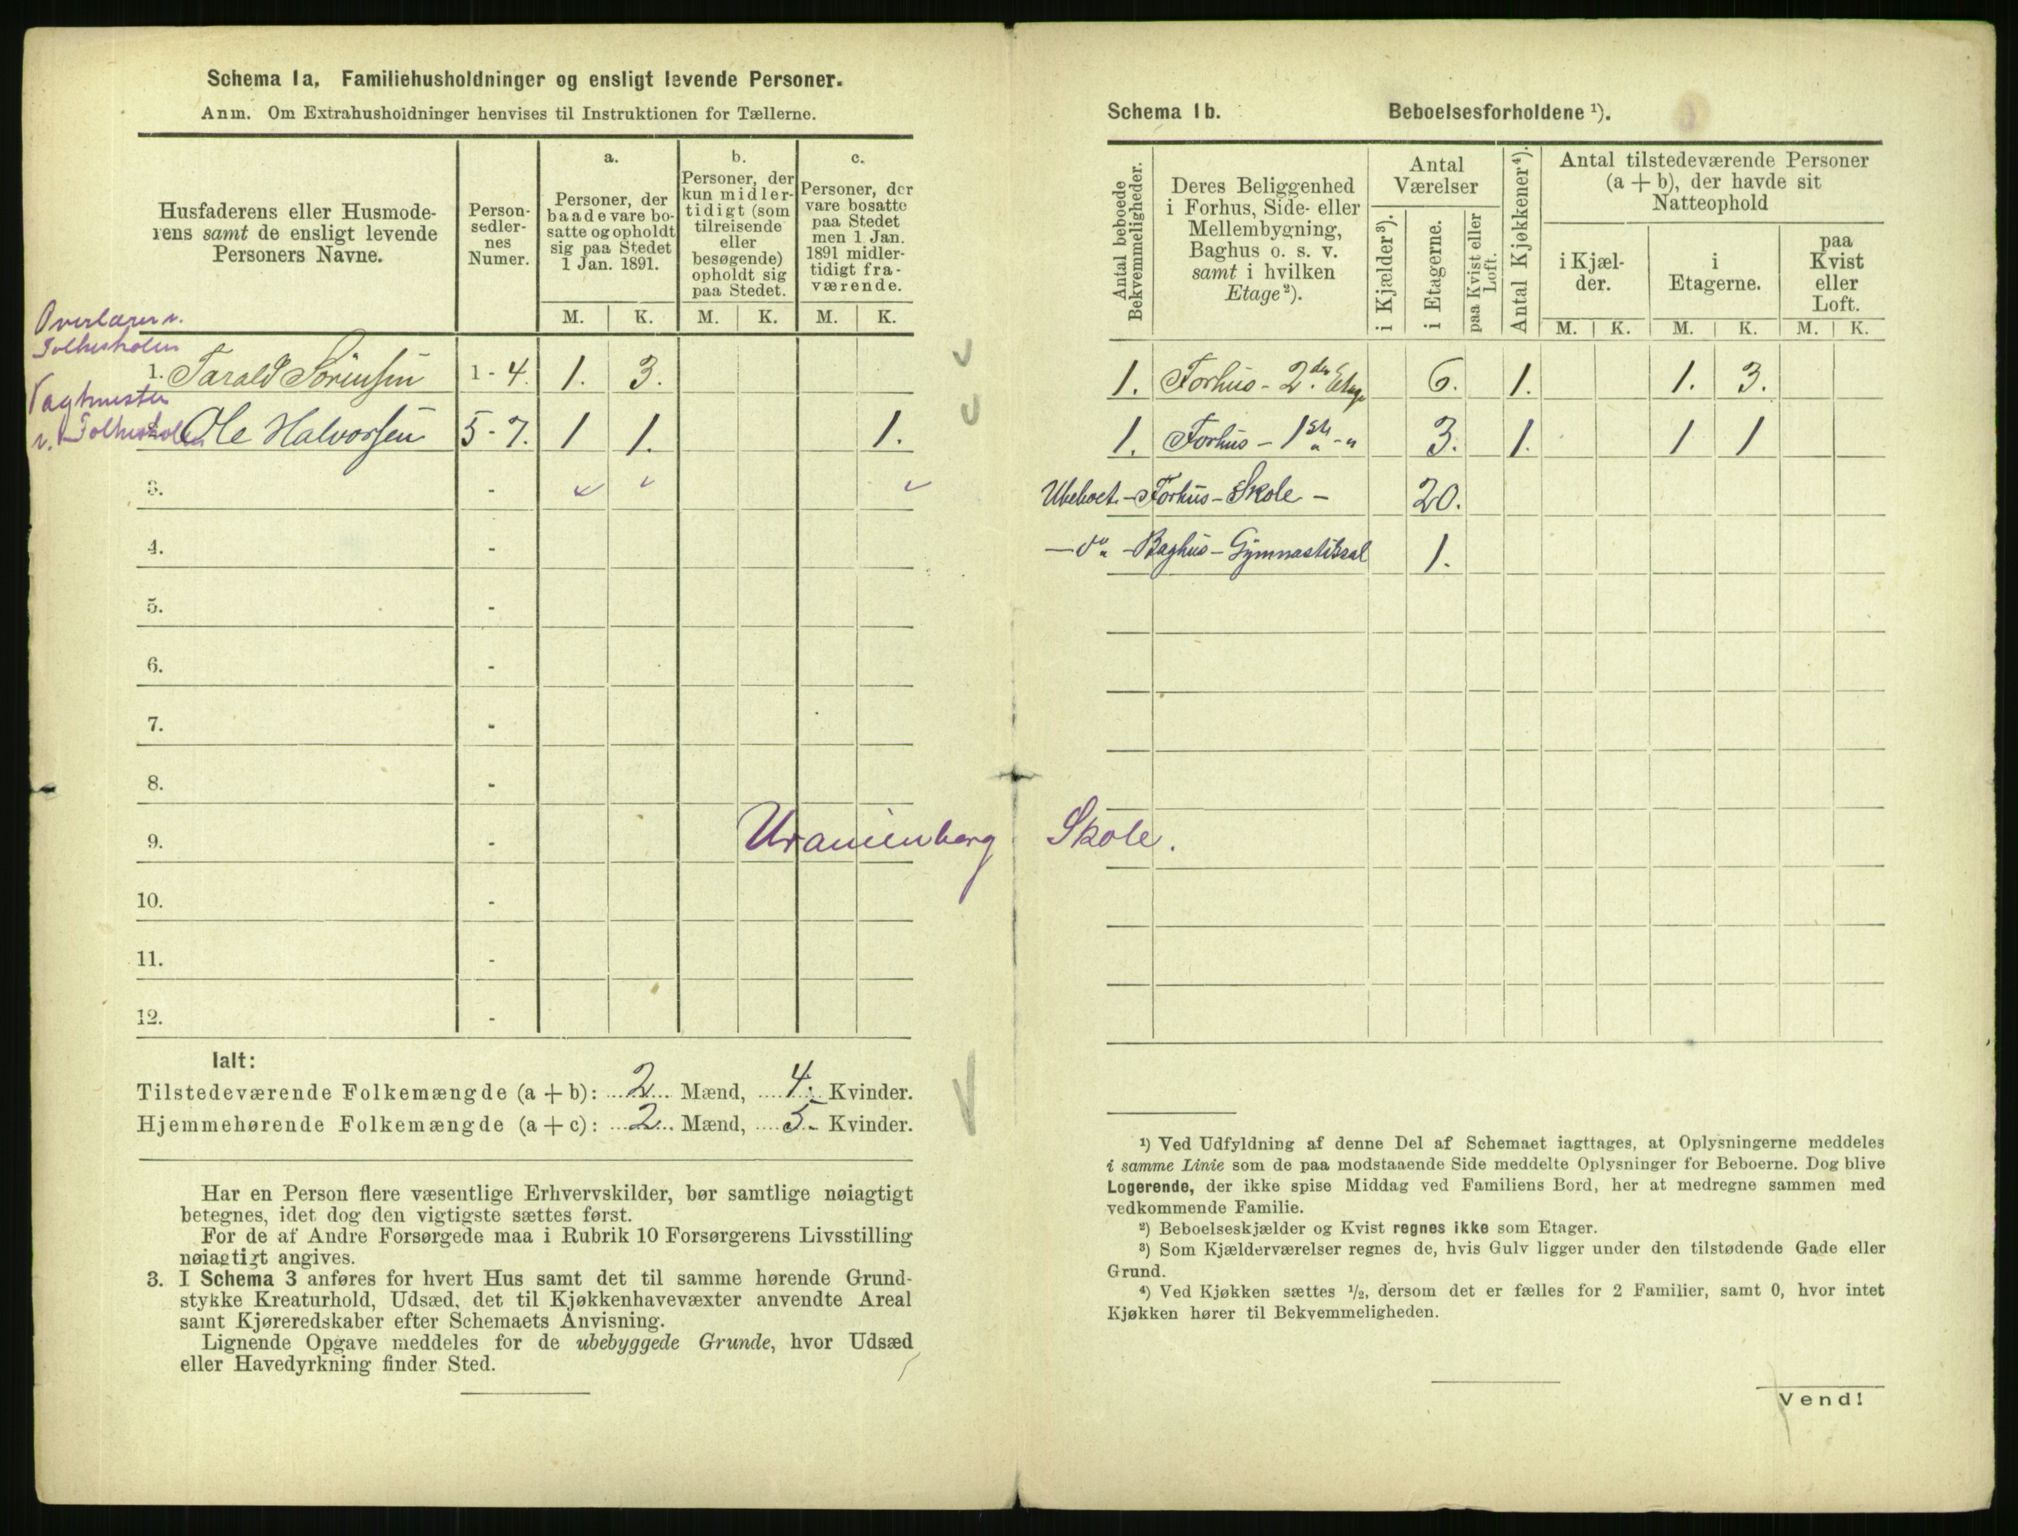 Schema 1a. Familiehusholdninger og ensligt levende Personer.
Anm. Om Extrahusholdninger henvises til Instruktionen for Tællerne.
Husfaderens eller Husmode-
rens samt de ensligt levende
Personers Navne.
Person-
sedler-
nes
Numer.
a.
Personer, der
baade vare bo-
satte og opholdt
sig paa Stedet
1 Jan. 1891.
b.
Personer, der
kun midler-
tidigt (som
tilreisende
eller
besøgende)
opholdt sig
paa Stedet.
c.
Personer, der
vare bosatte
paa Stedet
men 1 Jan.
1891 midler-
tidigt fra-
værende.
M. K. M. K. M. K.
Overlærer v.
Folkeskolen
1. Tarald Sörensen 1 - 4. 1. 3.
Vagtmester
v. Folkeskolen
Ole Halvorsen 5 - 7. 1 1. 1.
3. -
4. -
5. -
6. -
7. -
8. -
9. -
10. -
11. -
12. -
Uranienborg Skole.
Ialt:
Tilstedeværende Folkemængde (a + b): 2 Mænd, 4. Kvinder.
Hjemmehørende Folkemængde (a + c): 2 Mænd, 5 Kvinder.
Har en Person flere væsentlige Erhvervskilder, bør samtlige nøiagtigt
betegnes, idet dog den vigtigste sættes først.
For de af Andre Forsørgede maa i Rubrik 10 Forsørgerens Livsstilling
nøiagtigt angives.
3. I Schema 3 anføres for hvert Hus samt det til samme hørende Grund-
stykke Kreaturhold, Udsæd, det til Kjøkkenhavevæxter anvendte Areal
samt Kjøreredskaber efter Schemaets Anvisning.
Lignende Opgave meddeles for de ubebyggede Grunde, hvor Udsæd
eller Havedyrkning finder Sted.
Schema 1b. Beboelsesforholdene ¹).
Antal beboede
Bekvemmeligheder.
Deres Beliggenhed
i Forhus, Side- eller
Mellembygning,
Baghus o. s. v.
samt i hvilken
Etage²).
Antal
Værelser
i Kjælder³).
i Etagerne.
paa Kvist eller
Loft.
Antal Kjøkkener⁴).
Antal tilstedeværende Personer
(a + b), der havde sit
Natteophold
i Kjæl-
der.
i
Etagerne.
paa
Kvist
eller
Loft.
M. K. M. K. M. K.
1. Forhus - 2den Etage 6. 1. 1. 3.
1. Forhus - 1ste „ - „ 3. 1. 1 1
Ubeboet - Forhus - Skole - 20.
- do „ - Baghus - Gymnastiksal 1.
¹) Ved Udfyldning af denne Del af Schemaet iagttages, at Oplysningerne meddeles
i samme Linie som de paa modstaaende Side meddelte Oplysninger for Beboerne. Dog blive
Logerende, der ikke spise Middag ved Familiens Bord, her at medregne sammen med
vedkommende Familie.
²) Beboelseskjælder og Kvist regnes ikke som Etager.
³) Som Kjælderværelser regnes de, hvis Gulv ligger under den tilstødende Gade eller
Grund.
⁴) Ved Kjøkken sættes ½, dersom det er fælles for 2 Familier, samt 0, hvor intet
Kjøkken hører til Bekvemmeligheden.
Vend!